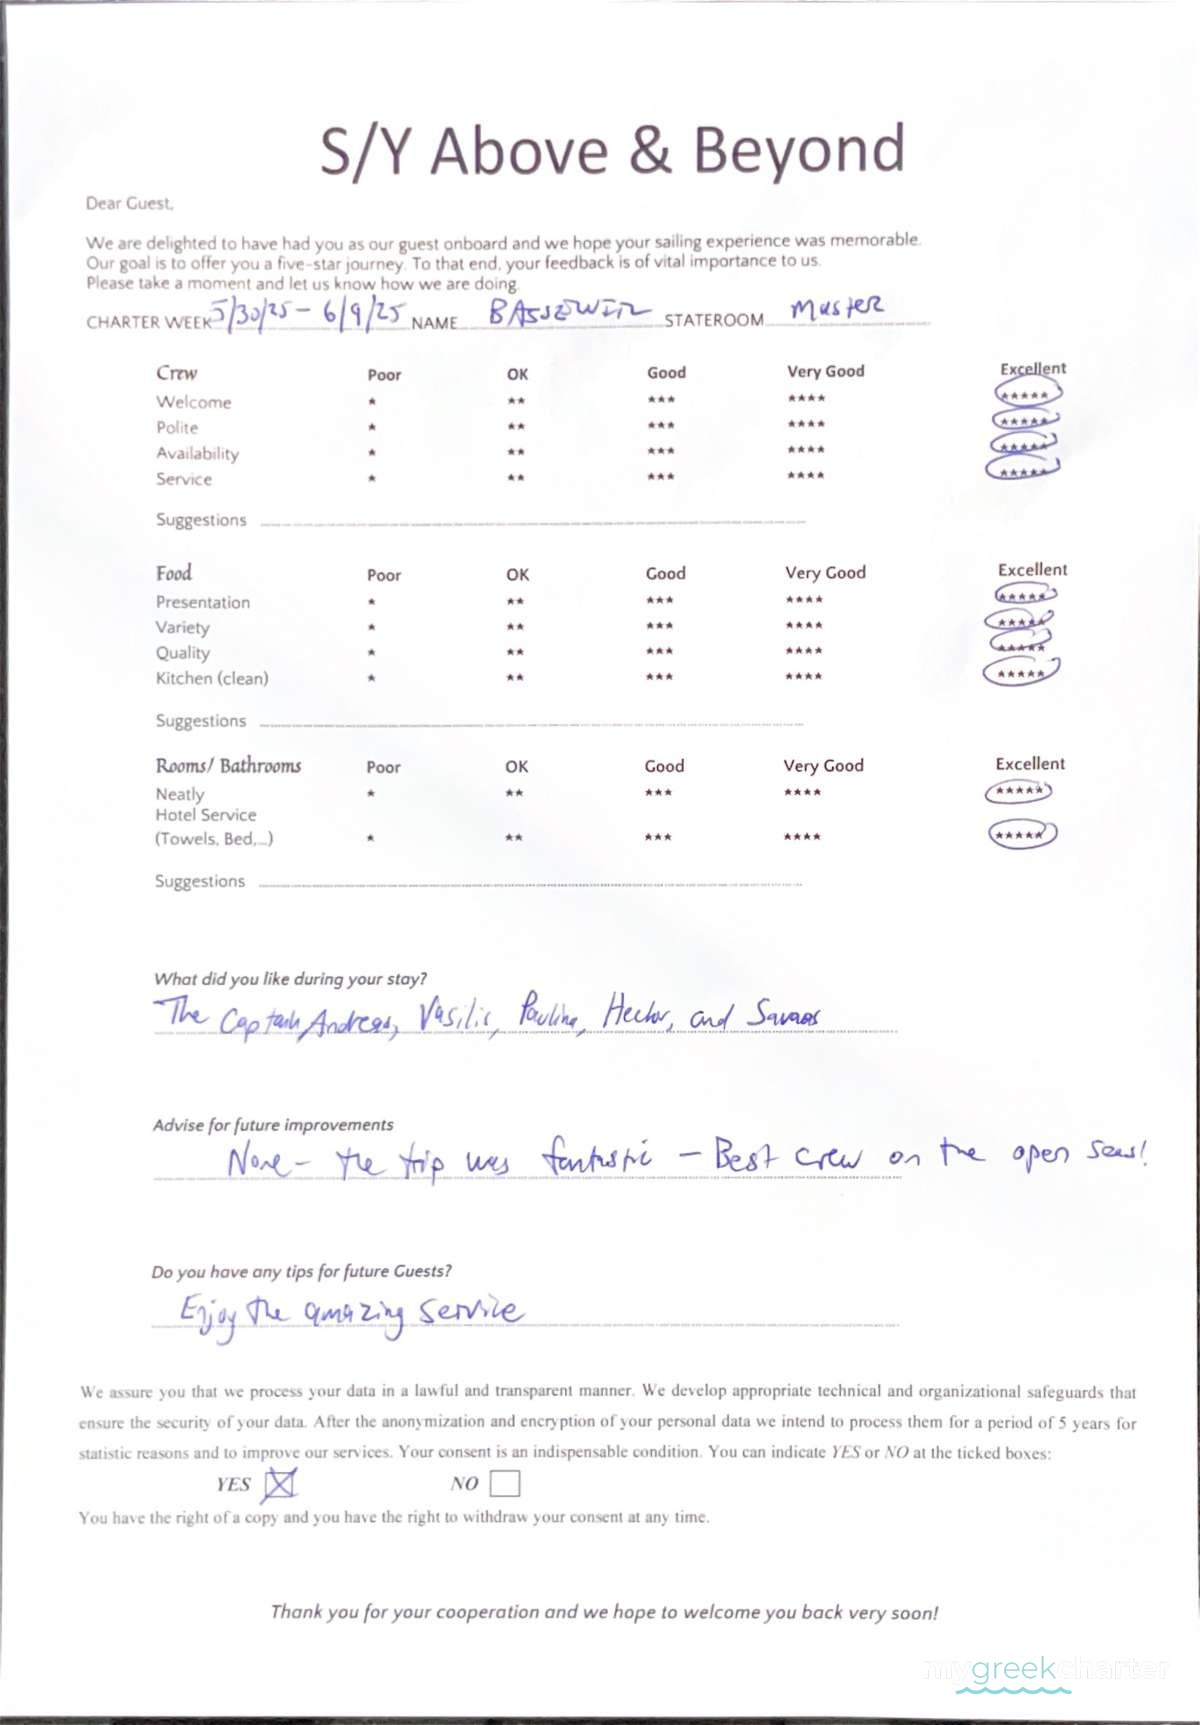 S/Y Above & Beyond
Dear Guest,
We are delighted to have had you as our guest onboard and we hope your sailing experience was memorable.
Our goal is to offer you a five-star journey. To that end, your feedback is of vital importance to us.
Please take a moment and let us know how we are doing.
CHARTER WEEK 5/30/25 - 6/9/25 NAME STATEROOM Master
Crew Poor OK Good Very Good Excellent
Welcome * ** *** **** *****
Polite * ** *** **** *****
Availability * ** *** **** *****
Service * ** *** **** *****
Suggestions
Food Poor OK Good Very Good Excellent
Presentation * ** *** **** *****
Variety * ** *** **** *****
Quality * ** *** **** *****
Kitchen (clean) * ** *** **** *****
Suggestions
Rooms/ Bathrooms Poor OK Good Very Good Excellent
Neatly * ** *** **** *****
Hotel Service
(Towels, Bed,...) * ** *** **** *****
Suggestions
What did you like during your stay?
The Captain Andreas, Vasilis, Pavlina, Hector, and
Advise for future improvements
None - the trip was fantastic - Best crew on the open seas!
Do you have any tips for future Guests?
Enjoy the amazing service
We assure you that we process your data in a lawful and transparent manner. We develop appropriate technical and organizational safeguards that
ensure the security of your data. After the anonymization and encryption of your personal data we intend to process them for a period of 5 years for
statistic reasons and to improve our services. Your consent is an indispensable condition. You can indicate YES or NO at the ticked boxes:
YES NO
You have the right of a copy and you have the right to withdraw your consent at any time.
Thank you for your cooperation and we hope to welcome you back very soon!
mygreekcharter